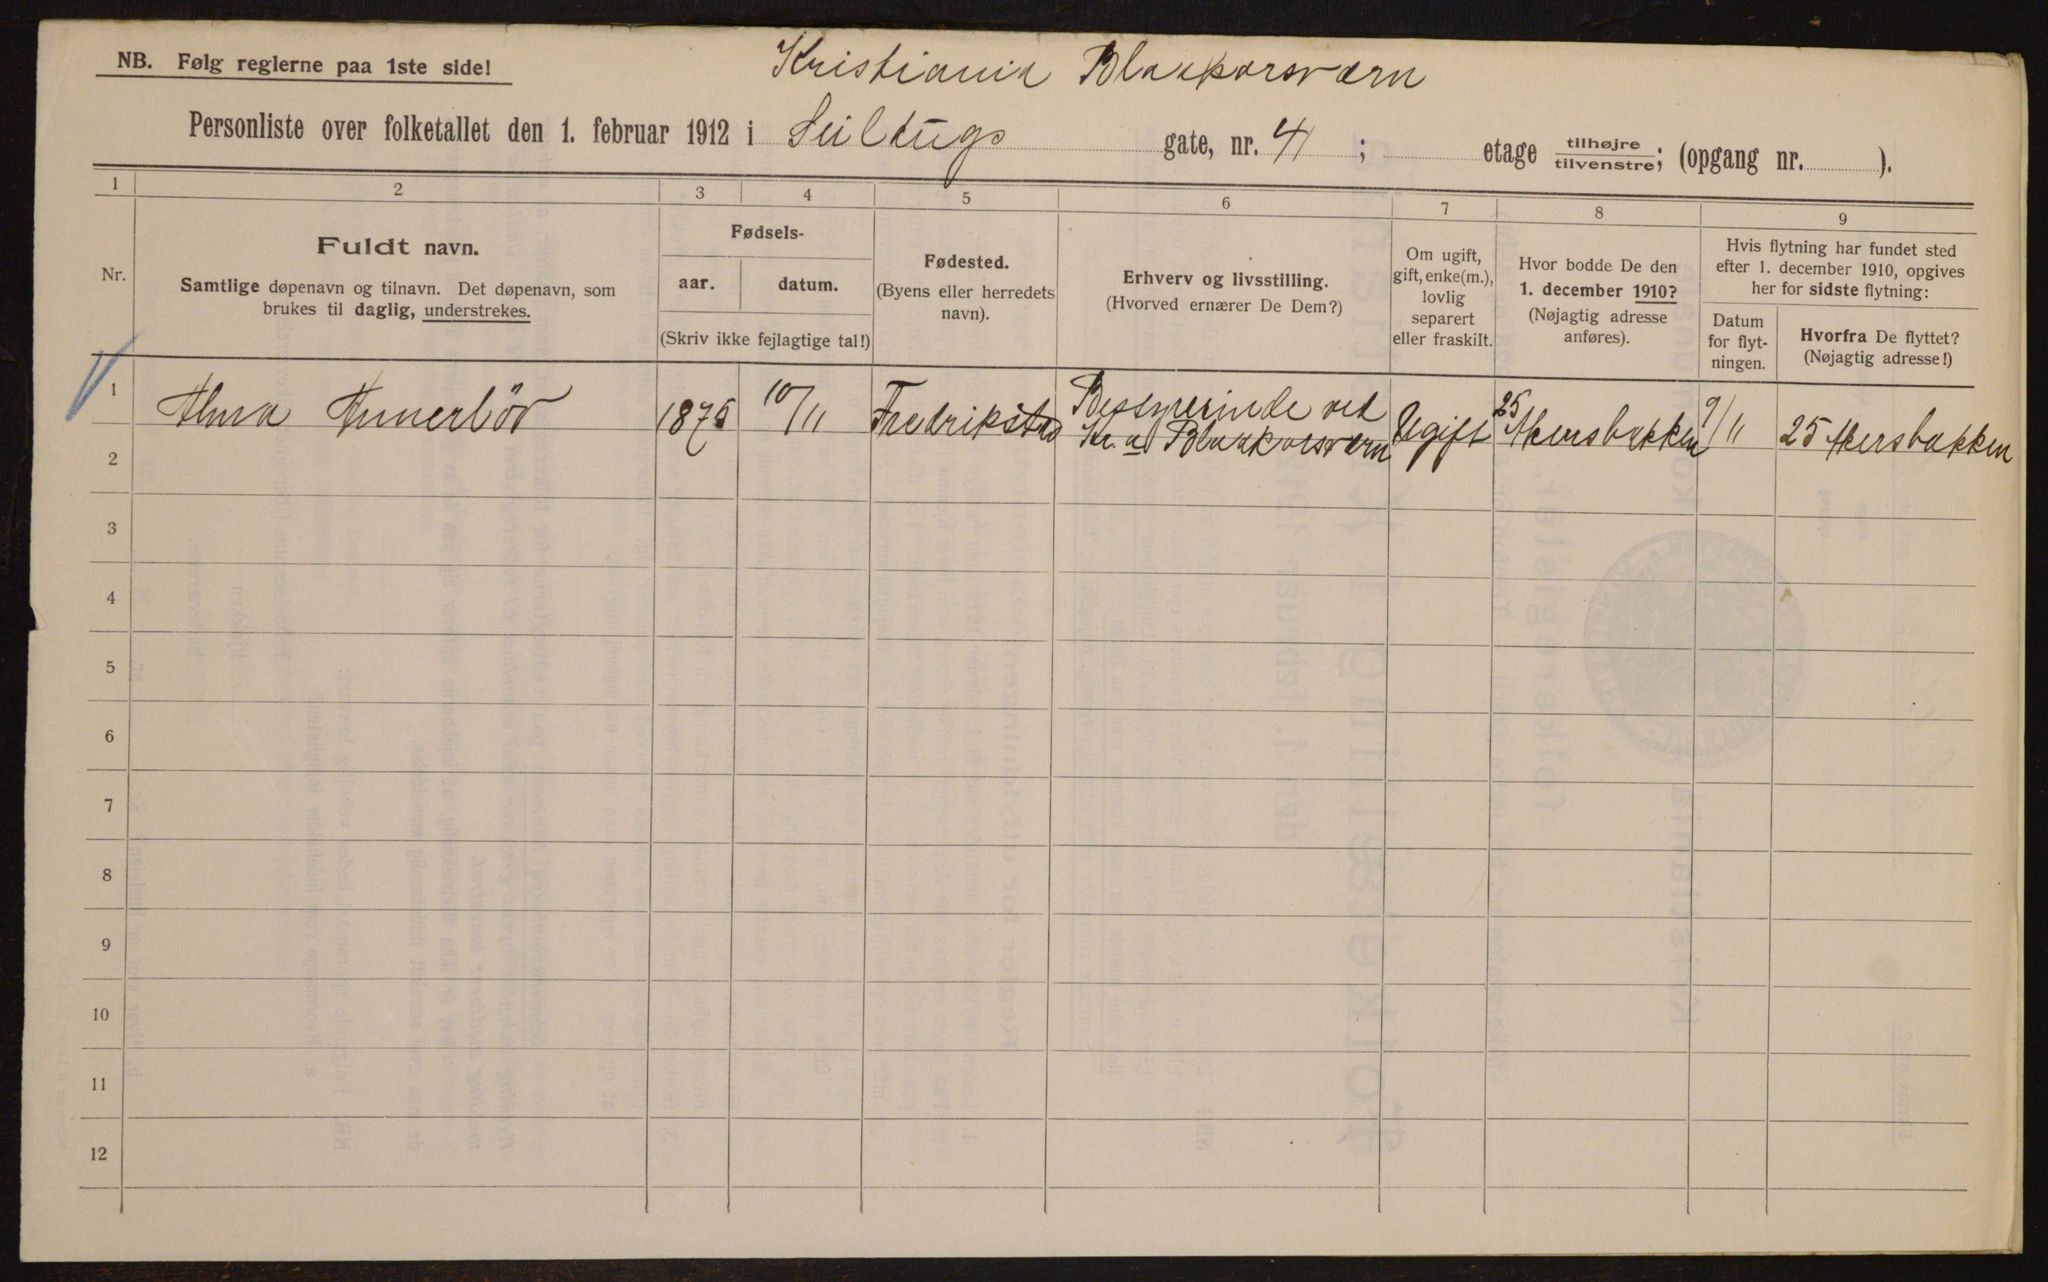 NB. Følg reglerne paa 1ste side!
Kristiania Blaakorsværn
Personliste over folketallet den 1. februar 1912 i Seildugs gate, nr. 41 ; etage tilhøjre tilvenstre; (opgang nr. ).
1 2 3 4 5 6 7 8 9
Nr.
Fuldt navn.
Samtlige døpenavn og tilnavn. Det døpenavn, som
brukes til daglig, understrekes.
Fødsels-
aar. datum.
(Skriv ikke fejlagtige tal!)
Fødested.
(Byens eller herredets
navn).
Erhverv og livsstilling.
(Hvorved ernærer De Dem?)
Om ugift,
gift, enke(m.),
lovlig
separert
eller fraskilt.
Hvor bodde De den
1. december 1910?
(Nøjagtig adresse
anføres).
Hvis flytning har fundet sted
efter 1. december 1910, opgives
her for sidste flytning:
Datum
for flyt-
ningen.
Hvorfra De flyttet?
(Nøjagtig adresse!)
1 Alma 1875 10/11 Fredrikstad Bestyrerinde ved
Kr.a Blaakorsværn Ugift 25 Akersbakken 9/11 25 Akersbakken
2
3
4
5
6
7
8
9
10
11
12